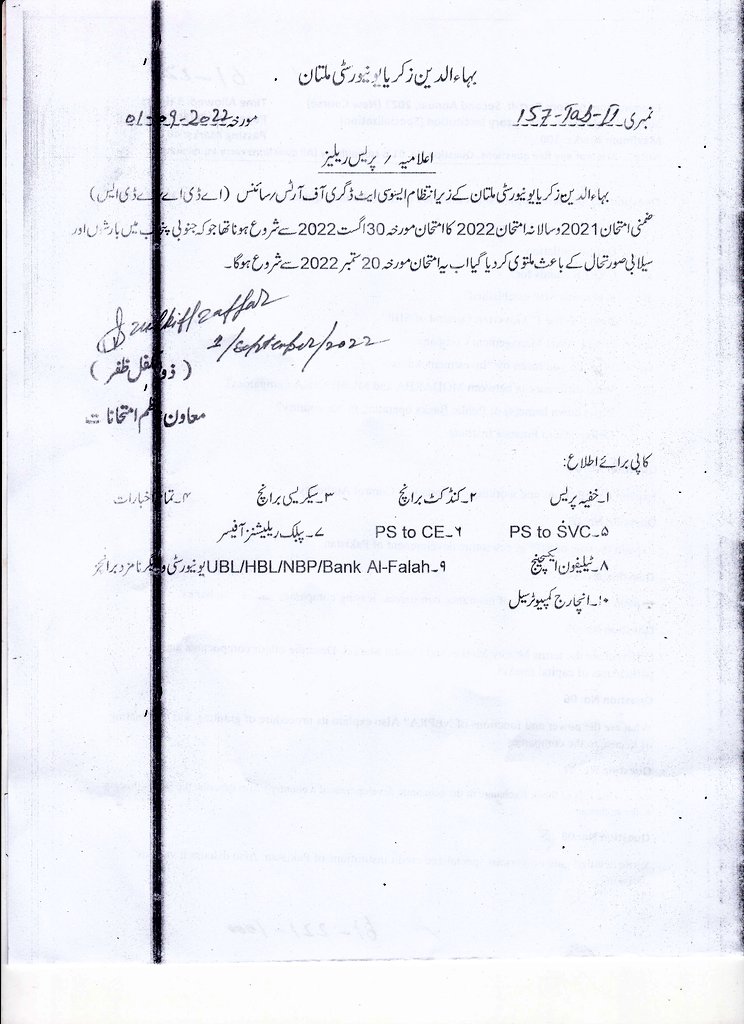 بہاءالدین زکریا یونیورسٹی ملتان
نمبری 157-Tab-II مورخہ 01-09-2022
اعلامیہ / پریس ریلیز
بہاءالدین زکریا یونیورسٹی ملتان کے زیر انتظام ایسوسی ایٹ ڈگری آف آرٹس / سائنس (اے ڈی اے / اے ڈی ایس)
ضمنی امتحان 2021 و سالانہ امتحان 2022 کا امتحان مورخہ 30 اگست 2022 سے شروع ہونا تھا جو کہ جنوبی پنجاب میں بارشوں اور
سیلابی صورتحال کے باعث ملتوی کردیا گیا اب یہ امتحان مورخہ 20 ستمبر 2022 سے شروع ہوگا۔
Zulkifl Zaffar
2/September/2022
(ذوالکفل ظفر)
معاون ناظم امتحانات
کاپی برائے اطلاع:
۱۔ خفیہ پریس ۲۔ کنڈکٹ برانچ ۳۔ سیکریسی برانچ ۴۔ تمام اخبارات
۵۔ PS to SVC ۶۔ PS to CE ۷۔ پبلک ریلیشنز آفیسر
۸۔ ٹیلیفون ایکسچینج ۹۔ UBL/HBL/NBP/Bank Al-Falah یونیورسٹی و دیگر نامزد برانچز
۱۰۔ انچارج کمپیوٹر سیل